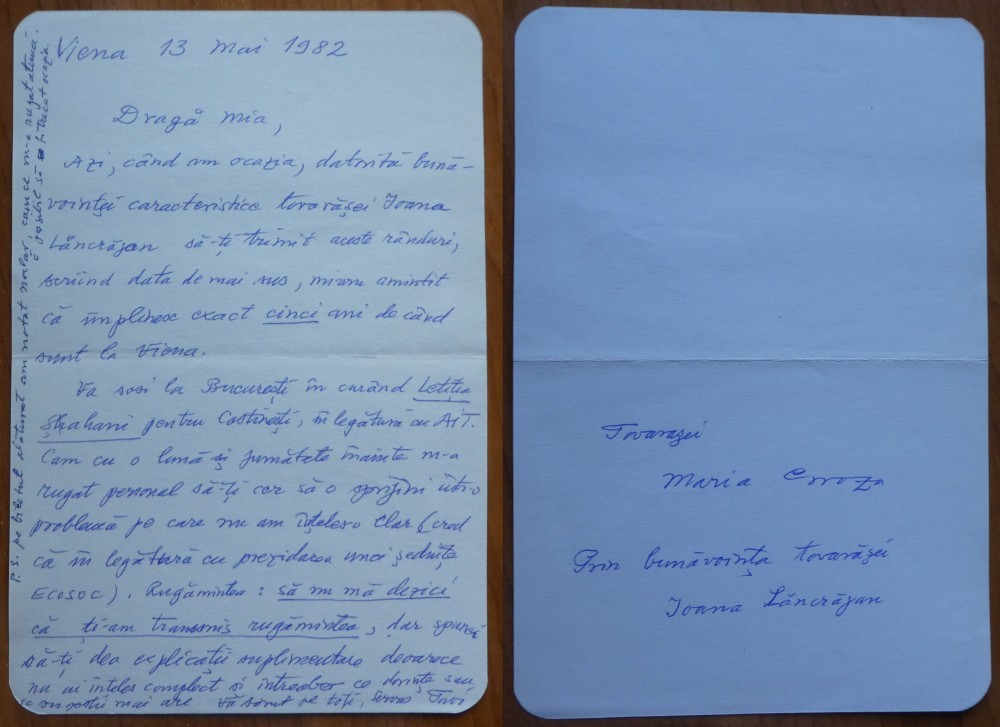 Viena 13 mai 1982
Dragă Mia,
Azi, când am ocazia, datorită bună-
voinţei caracteristice tovarăşei Ioana
Lăncrăjan să-ţi trimit aceste rânduri,
scriind data de mai sus, mi-am amintit
că împlinesc exact cinci ani de când
sunt la Viena.
Va sosi la Bucureşti în curând Letiţia
Shahani pentru Costineşti, în legătură cu AIT.
Cam cu o lună şi jumătate înainte m-a
rugat personal să-ţi cer să o sprijini într-o
problemă pe care nu am înţeles-o clar (cred
că în legătură cu prezidarea unei şedinţe
ECOSOC). Rugămintea: să nu mă dezici
că ţi-am transmis rugămintea, dar spune
să-ţi dea explicaţii suplimentare deoarece
nu ai înţeles complect şi întreabă ce dorinţe sau
sugestii mai are. Vă sărut pe toţi,
P.S. pe biletul alăturat am notat neclar, cam ce m-a rugat atunci.
E posibil să fi trecut ocazia.
Tovarăşei
Maria Groza
Prin bunăvoinţa tovarăşei
Ioana Lăncrăjan